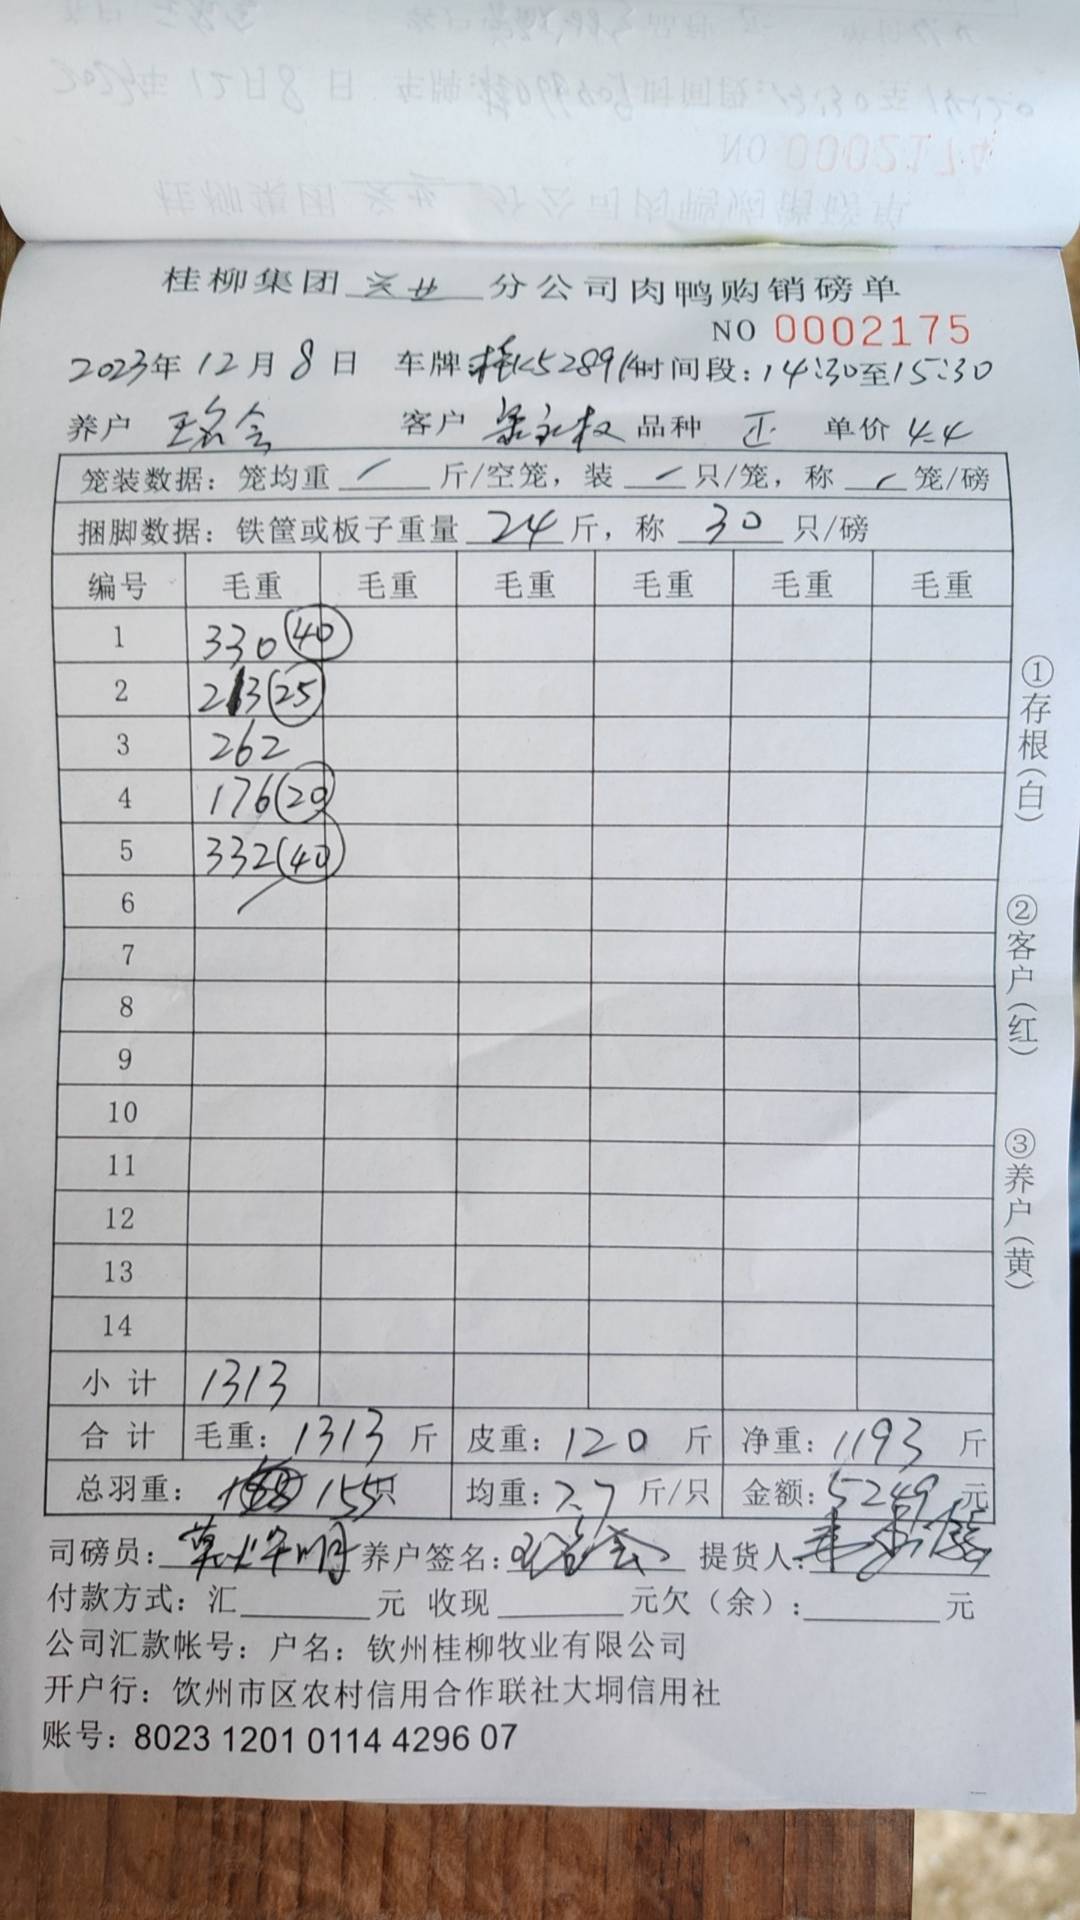 桂柳集团 分公司肉鸭购销磅单
NO 0002175
2023年12月8日 车牌: 52891 时间段:14:30至15:30
养户 客户 品种 正 单价 4.4
笼装数据:笼均重 斤/空笼,装 只/笼,称 笼/磅
捆脚数据:铁筐或板子重量 24 斤,称 30 只/磅
编号 毛重 毛重 毛重 毛重 毛重 毛重
1 330 (40)
2 213 (25)
3 262
4 176 (20)
5 332 (40)
6
7
8
9
10
11
12
13
14
小计 1313
合计 毛重:1313 斤 皮重:120 斤 净重:1193 斤
总羽重: 155只 均重:7.7 斤/只 金额:5249 元
司磅员: 养户签名: 提货人:
付款方式:汇 元 收现 元欠(余): 元
公司汇款帐号:户名:钦州桂柳牧业有限公司
开户行:饮州市区农村信用合作联社大垌信用社
账号:8023 1201 0114 4296 07
①存根(白)
②客户(红)
③养户(黄)